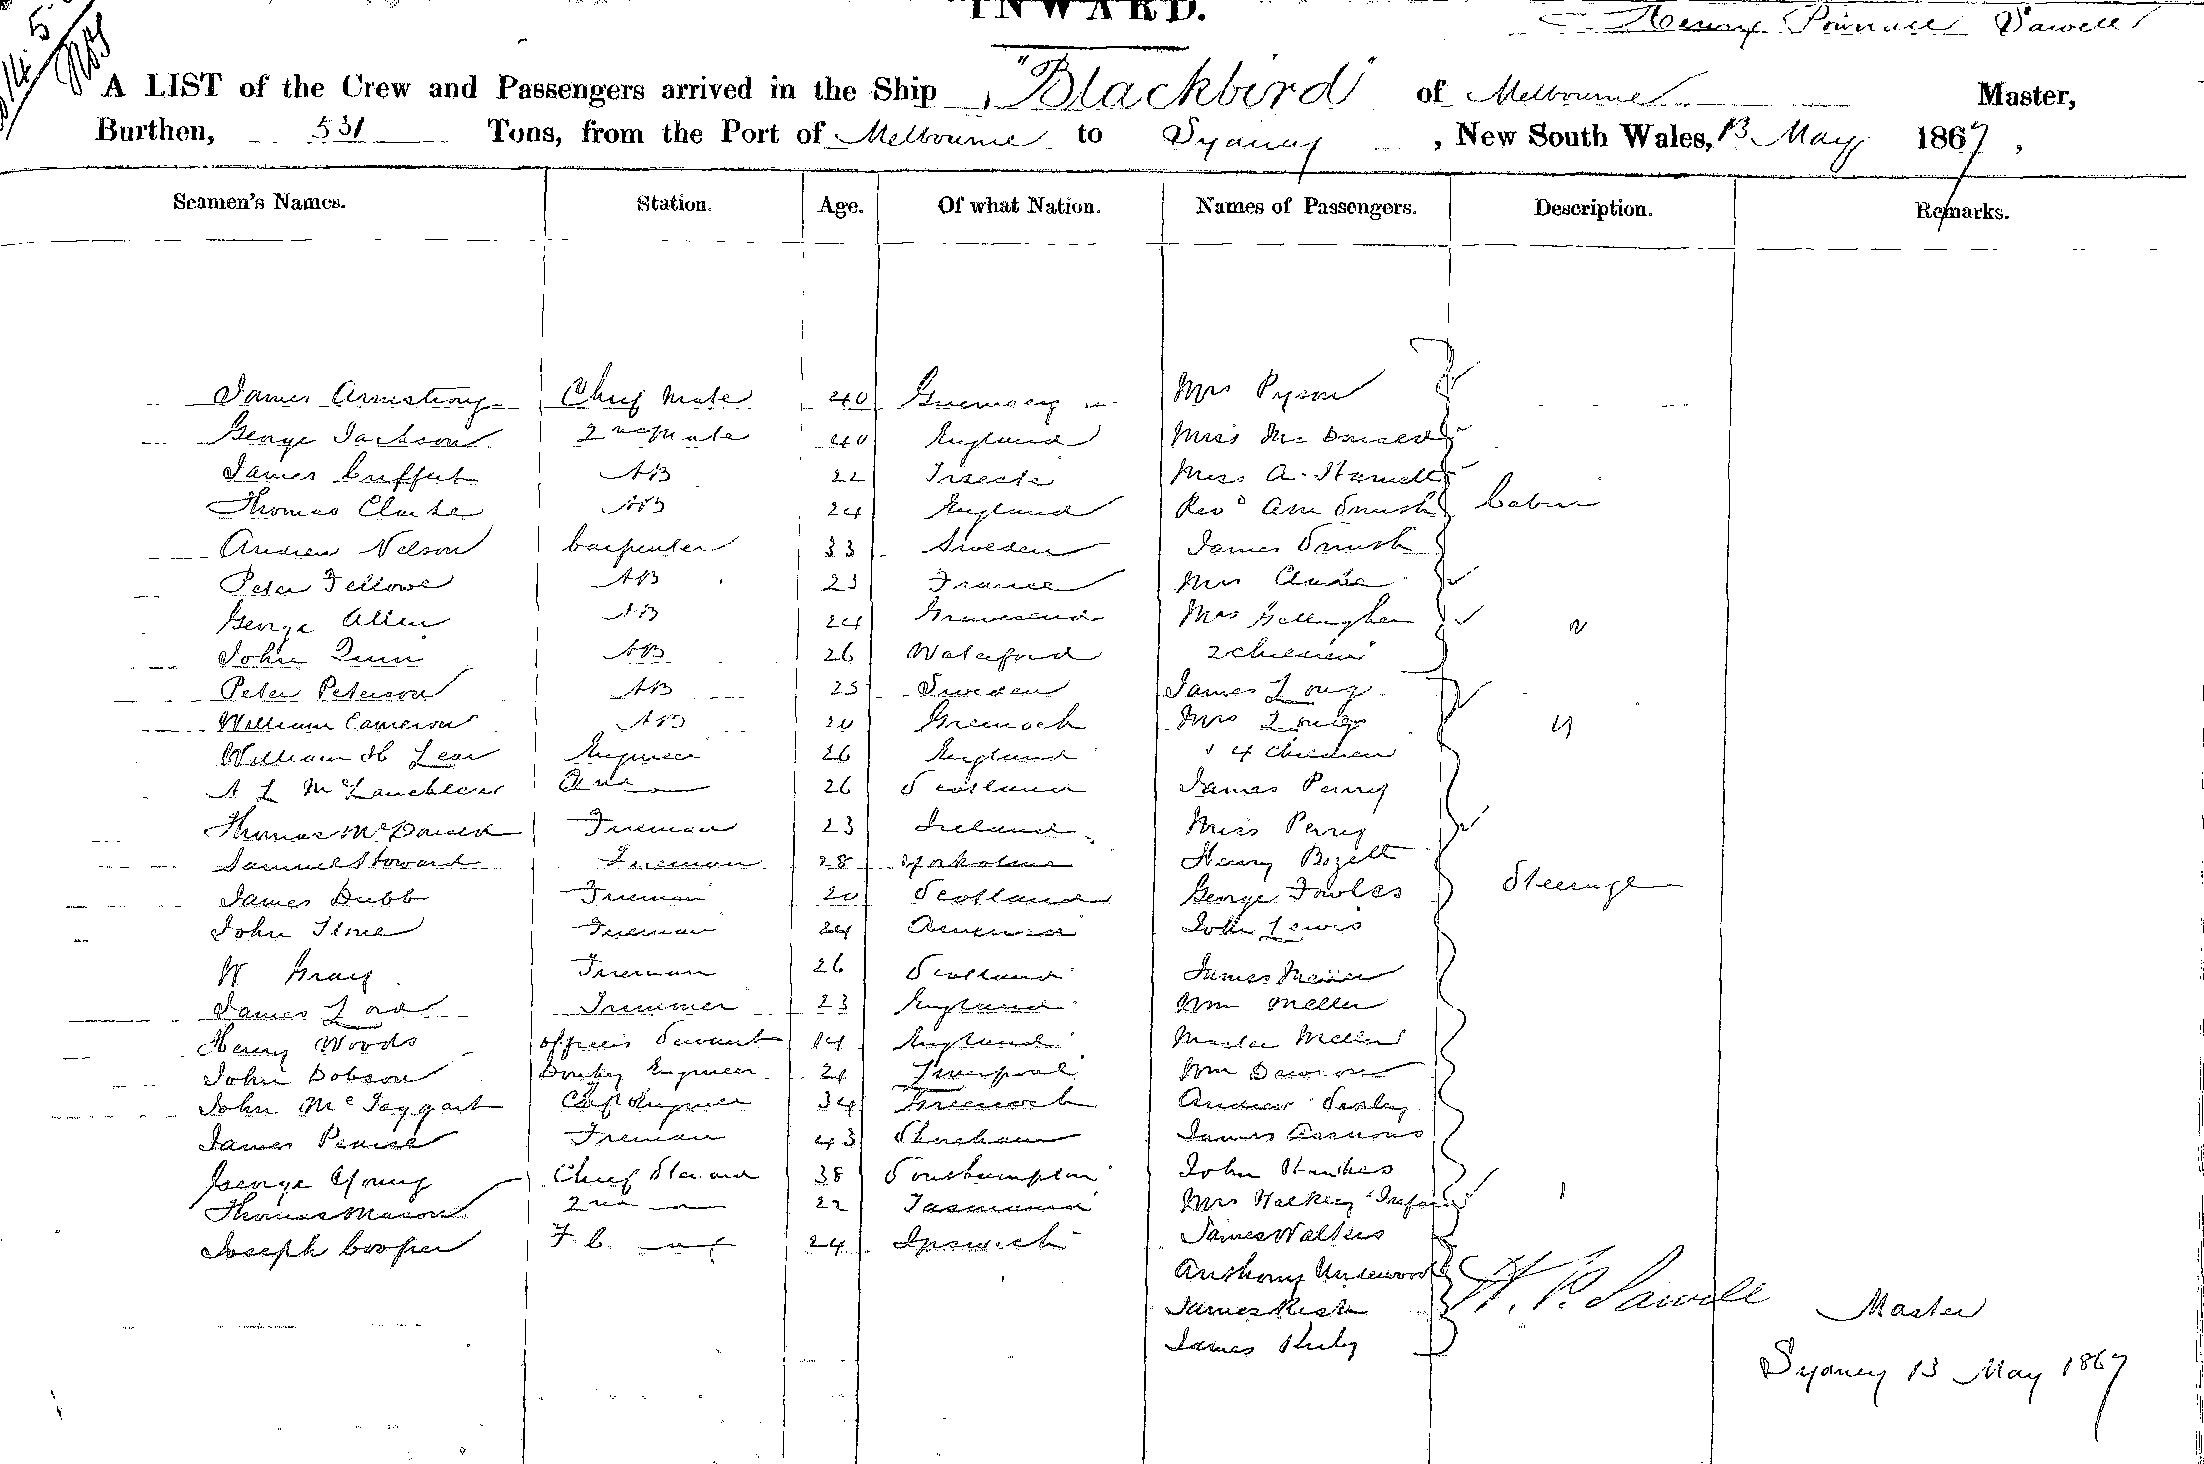 INWARD.
Henry Sawell
A LIST of the Crew and Passengers arrived in the Ship "Blackbird" of Melbourne Master,
Burthen, 531 Tons, from the Port of Melbourne to Sydney, New South Wales, 13 May 1867,
Seamen's Names. Station. Age. Of what Nation. Names of Passengers. Description. Remarks.
James Armstrong Chief Mate 40 Guernsey Mrs Pyson
George Jackson 2nd Mate 40 England Miss
James Cuffert AB 22 Miss A.
Thomas Clarke AB 24 England Revd Smith Cabin
Andrew Nelson Carpenter 33 Sweden James Smith
Peter Fellowe AB 23 France
George Allen AB 24 Gravesend Mrs Gellingham
John Quin AB 26 Waterford 2 children
Peter Peterson AB 25 Sweden James Long
William Cameron AB 20 Greenock Mrs Long
William H Lear Engineer 26 England 4 children
A L McLauchlan 2nd 26 Scotland James Perry
Thomas Fireman 23 Ireland Miss Perry
Samuel Howard Fireman 28 Henry Bizett
James Dubb Fireman 20 Scotland George Fowles Steerage
John Fireman 24 America John Lewis
W Graig Fireman 26 Scotland James
James Lord Trimmer 23 England Wm Meller
Henry Woods officers Servant 14 England Master Meller
John Dobson Donkey Engineer 24 Liverpool Wm Dawson
John McTaggart Chf Engineer 34 Greenock Andrew
James Pearse Fireman 43 Shoreham James
George Young Chief Steward 38 Southampton John Hawkes
Thomas Mason 2nd 22 Tasmania Mrs Infant 1
Joseph Cooper F C 24 Ipswich James Walters
Anthony Underwood
James
James
H. P. Sawell Master
Sydney 13 May 1867